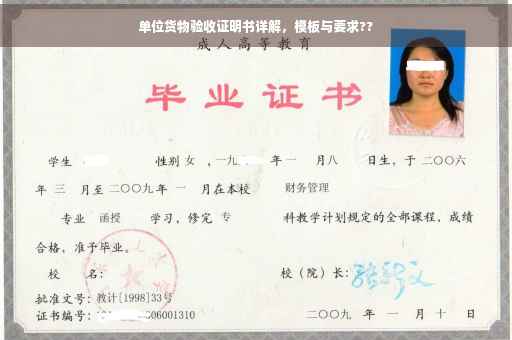 单位货物验收证明书详解，模板与要求??
成人高等教育
毕业证书
学生 性别 女 ，一九 年 一 月 八 日生，于 二〇〇六
年 三 月至 二〇〇九 年 一 月在本校 财务管理
专业 函授 学习，修完 专 科教学计划规定的全部课程，成绩
合格，准予毕业。
校 名： 校（院）长：
批准文号：教计[1998]33号
证书编号： 06001310 二〇〇九 年 一 月 十 日